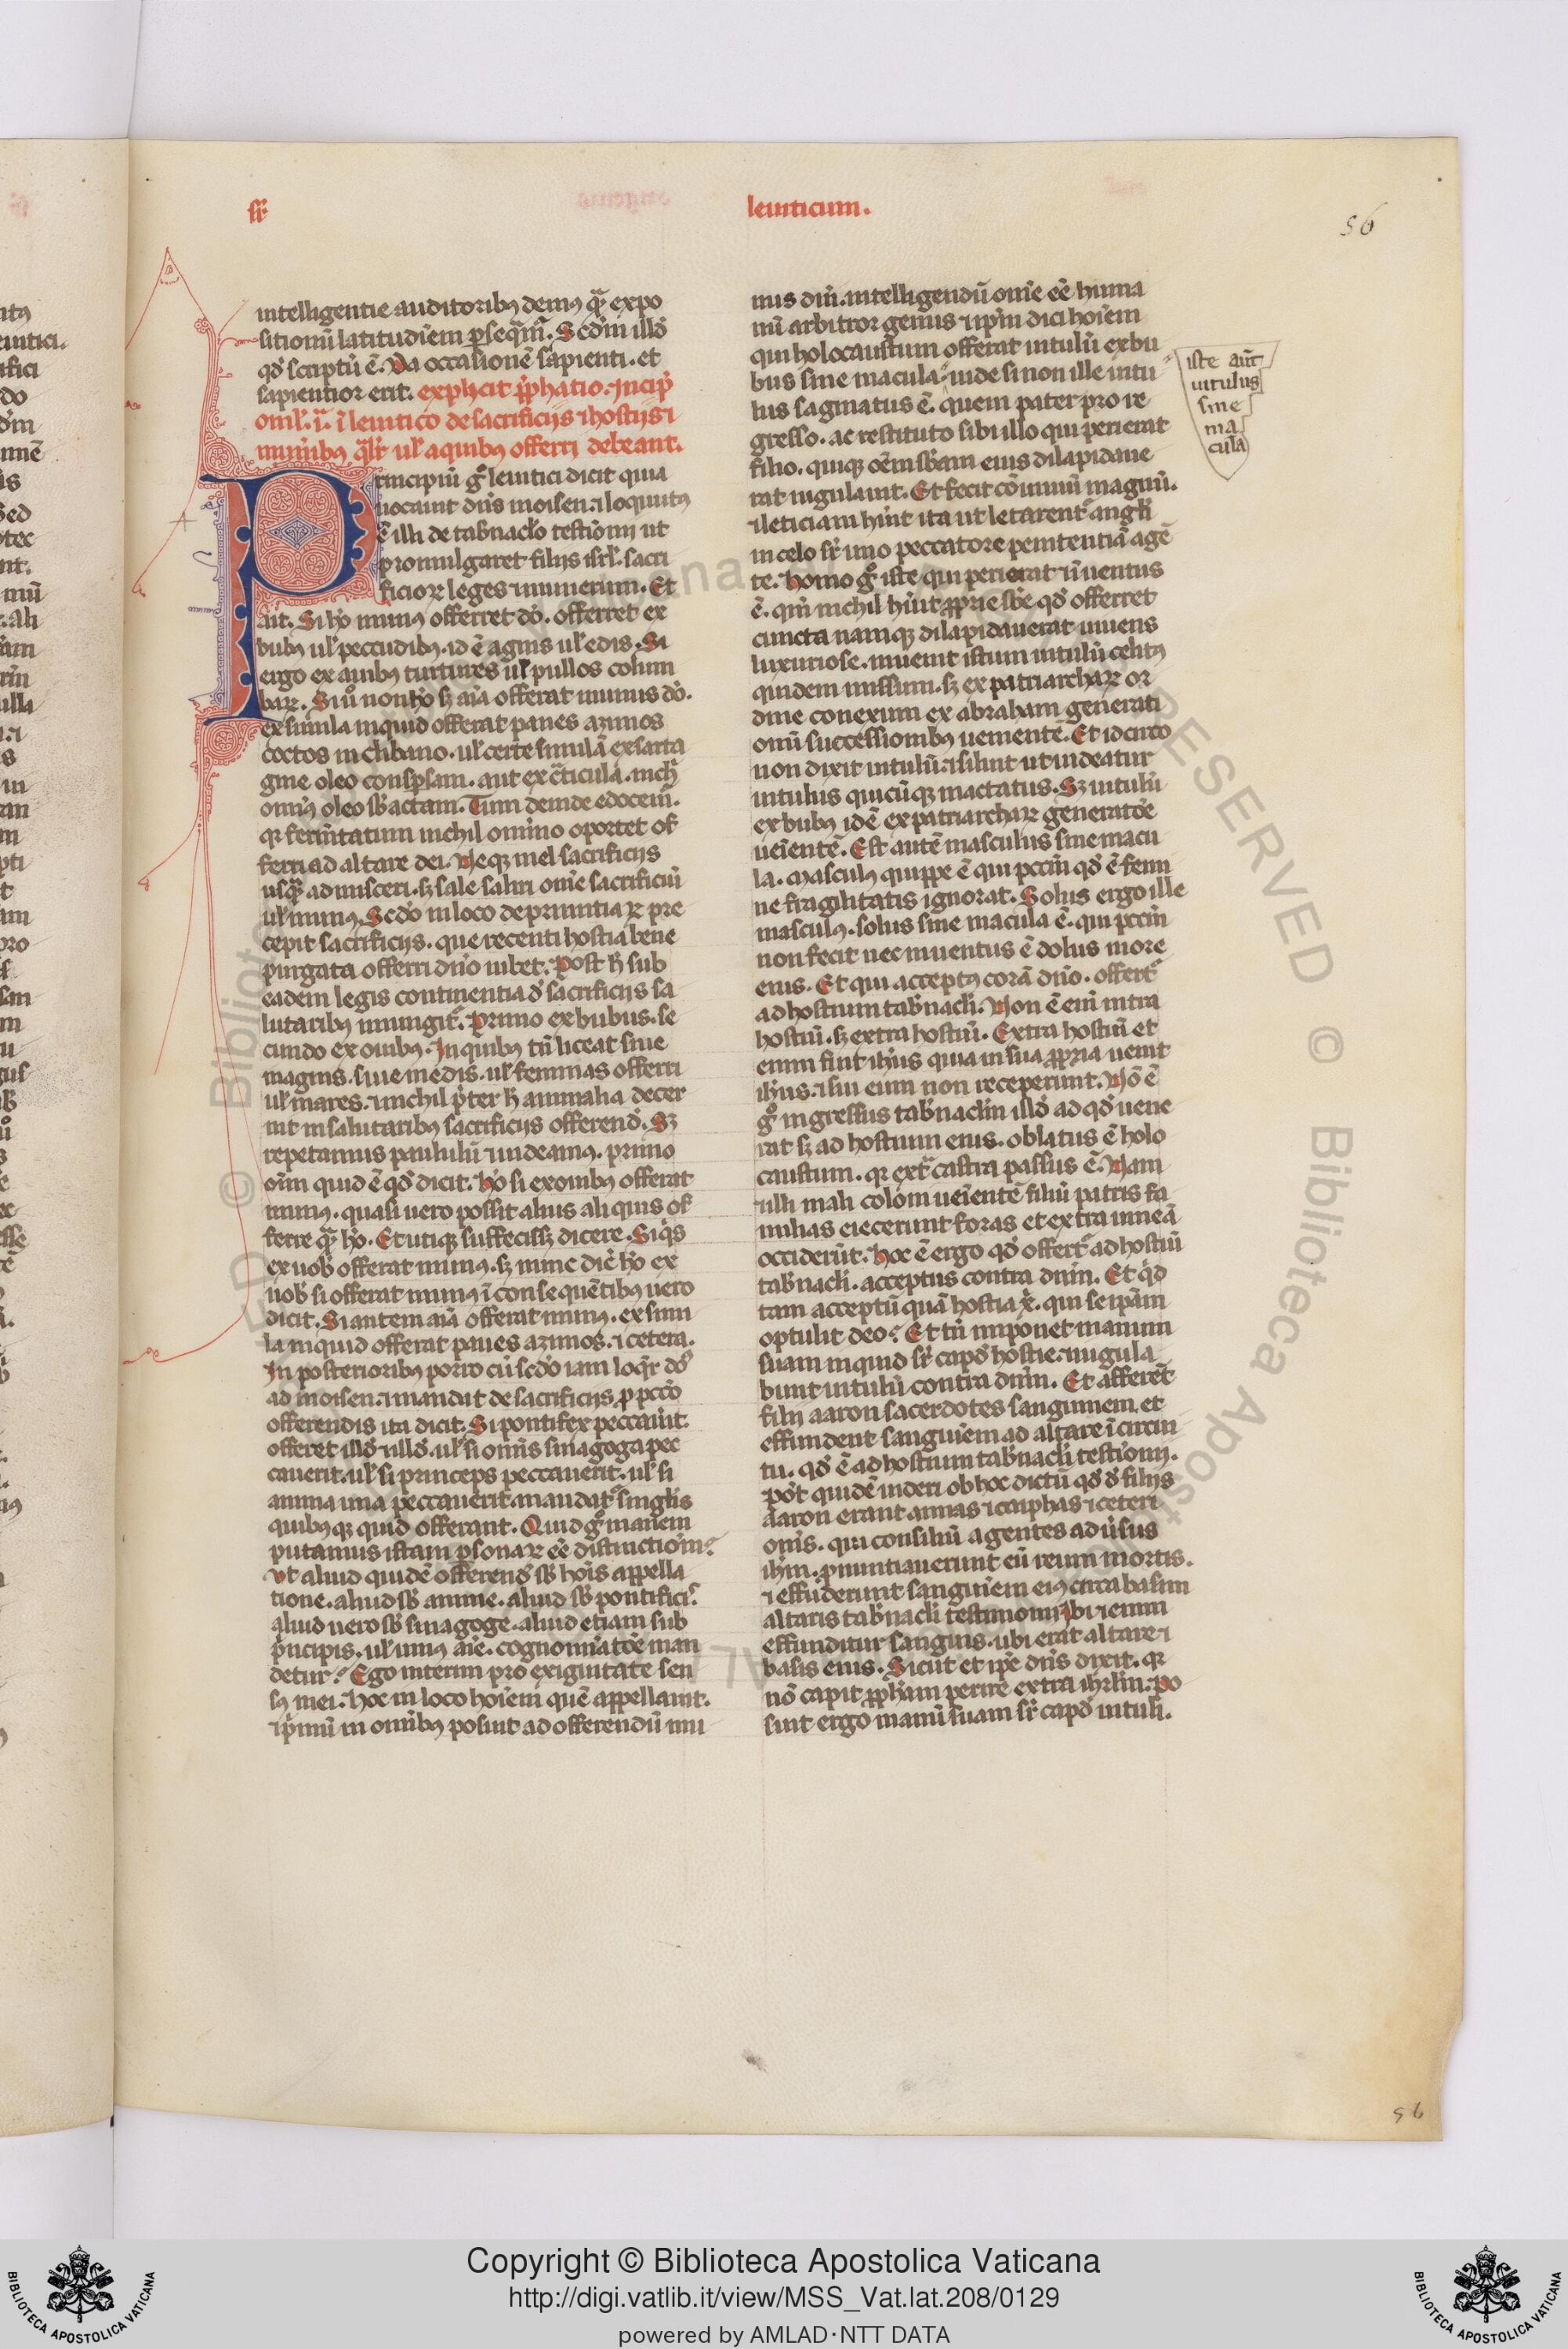 sr̄
leuiticum.
56
intelligentie auditoribꝰ demꝰ q̄ꝫ expo
sitionū latitudiēm ꝑseq̄m̄. Sedm̄ illḋ
qḋ scriptū ē. Da occasionē sapienti. et
sapientior erit. explicit ꝓphatio. Incip̄
omł. i. ī leuitico de sacrificijs ⁊ hostijs ⁊
munibꝰ q̄lr̄ uł a quibꝰ offerri debeant.
Principiū gͦ leuitici dicit quia
uocauit dn̄s moisen. ⁊ loquutꝰ
ē illi de tab̄naclo testiōnij ut
promulgaret filijs isrł. sacri
ficioꝝ leges ⁊ munerum. Et
ait. Si hō munꝰ offerret dō. offerret ex
bubꝰ uł peccudibꝰ. id ē agnis uł edis. Si
ergo ex auibꝰ turtures uł pullos colum
baꝝ. Si uͦ non hō sꝫ aīa offerat munus dō.
ex simila inquid offerat panes azimos
coctos in clibano. uł certe similā ex sarta
gine oleo consꝑsam. aut ex c̄ticula. inch̄
omīs oleo sb̄actam. Tum deinde edocem̄.
qꝛ ferm̄tatum nichil omīno oportet of
ferri ad altare dei. Neqꝫ mel sacrificijs
usq̄ꝫ ad misceri. sꝫ sale saliri ome sacrificiū
uł munꝰ. Sedō in loco de primitiaꝝ pre
cepit sacrificijs. que recenti hostia bene
purgata offerri dn̄o iubet. Post h̄ sub
eadem legis continentia ḋ sacrificijs sa
lutaribꝰ iniungit᷑. Primo ex bubus. se
cundo ex ouibꝰ. In quibꝰ tn̄ liceat siue
magnis. siue medis. uł feminas offerri
uł mares. ⁊ nichil p̄ter h̄ animalia decer
nit in salutaribꝰ sacrificijs offerend̄. Sꝫ
repetamus paululū ⁊ uideamꝰ. primo
om̄m quid ē qḋ dicit. Hō si ex ouibꝰ offerat
munꝰ. quasi uero possit alius aliquis of
ferre q̄ꝫ hō. Et utiqꝫ suffecissꝫ dicere. Siq̄s
ex uob̄ offerat munꝰ. sꝫ nunc dic̄ hō ex
uob̄ si offerat munꝰ ī consequētibꝰ uero
dicit. Si autem aīa offerat munꝰ. ex simi
la inquid offerat panes azimos. ⁊ cetera.
In posterioribꝰ porro cū sedō iam loq̄r dō
ad moisen. ⁊ mandat de sacrificijs ꝓ pccō
offerendis ita dicit. Si pontifex peccauit.
offeret illḋ ⁊ illḋ. uł si omīs sinagoga pec
cauerit. uł si princeps peccauerit. uł si
anima una peccauerit. mandat᷑ singłis
quibꝰqꝫ quid offerant. Quid gͦ manem
putamus istam ꝑsonaꝝ eē distinctiōm?
Vt aliud quidē offerend̄ sb̄ hoīs appella
tione. aliud sb̄ anime. aliud sb̄ pontificis.
aliud uero sb̄ sinagoge. aliud etiam sub
pīncipis. uł unius aīe. cognomīatōe man
detur? Ego interim pro exiguitate sen
sꝰ mei. hoc in loco hoīem quē appellauit.
⁊ p̄mū in omībꝰ posuit ad offerendū mu
nus dn̄i. intelligendū ome eē huma
nū arbitror genus ⁊ ip̄m dici hoīem
qui holocaustum offerat uitulū ex bu
bus sine macula. uide si non ille uitu
lus saginatus ē. quem pater pro re
gresso. ac restituto sibi illo qui perierat
filio. quiqꝫ oēm sb̄am eius dilapidaue
rat iugulauit. Et fecit cōiuuiū magnū.
⁊ leticiam hūit ita ut letarent᷑ angli
in celo sr̄ uno peccatore penitentiā agē
te. homo gͦ iste qui perierat ⁊ īuentus
ē. qm̄ nichil hūit ꝓprie sb̄e qḋ offerret
cuncta namqꝫ dilapidauerat uiuens
luxuriose. inuenit istum uitulū celitꝰ
quidem missum. sꝫ ex patriarchaꝝ or
dine conexum ex abraham generati
onū successionibꝰ uementē. Et idcirco
non dixit uitulū. ⁊ siliut ut uideatur
uitulus quicūqꝫ mactatus. Sꝫ uitulū
ex bubꝰ id ē ex patriarchaꝝ generatōe
ueientē. Est autē masculus sine macu
la. Masculꝰ quippe ē qui pccm̄ qḋ ē femi
ne fragilitatis ignorat. Solus ergo ille
masculꝰ. solus sine macula ē. qui pccm̄
non fecit nec inuentus ē dolus in ore
eius. Et qui acceptꝰ corā dn̄o. offert᷑
ad hostium tab̄nacli. Non ē ein̄ intra
hostiū. sꝫ extra hostiū. Extra hostiū et
enim fuit ih̄us quia in sua ꝓpria uenit
ih̄us. ⁊ sui eum non receperunt. Nō ē
gͦ ingressus tab̄naclm̄ illḋ ad qḋ uene
rat sꝫ ad hostium eius. oblatus ē holo
caustum. qꝛ ext̄ castra passus ē. Nam
⁊ illi mali coloni ueientē filiū patris fa
milias eiecerunt foras et extra uineā
occiderūt. Hoc ē ergo qḋ offert᷑ ad hostiū
tab̄nacli. acceptus contra dn̄m. Et q̄d
tam acceptū quā hostia x̄. qui se ip̄am
optulit deo? Et tn̄ imponet manum
suam inquid sr̄ capḋ hostie. ⁊ iugula
bunt uitulū contra dn̄m. Et afferēt
filij aaron sacerdotes sanguinem. et
effundent sanguiem ad altare ī circui
tu. qḋ ē ad hostium tab̄nacli testīonij.
pōt quidē uideri ob hoc dictū qḋ ḋ filijs
aaron erant annas ⁊ caiphas ⁊ ceteri
oms̄. qui consiliū agentes aduīsus
ih̄m. ꝓnuntiauerunt eū reum mortis.
⁊ effūderunt sanguiem eiꝰ circa basim
altaris tab̄nacli testimonij. Ibi ⁊ enim
effunditur sanguis. ubi erat altare ⁊
basis eius. Sicut et ip̄e dn̄s dixit. qꝛ
nō capit ꝓph̄am perire extra ih̄rlm̄. Po
suit ergo manū suam sr̄ capḋ uituli.
iste aūt
uitulus
sine
ma
cula
56
Copyright © Biblioteca Apostolica Vaticana
http://digi.vatlib.it/view/MSS_Vat.lat.208/0129
powered by AMLAD·NTT DATA
BIBLIOTECA APOSTOLICA VATICANA
BIBLIOTECA APOSTOLICA VATICANA